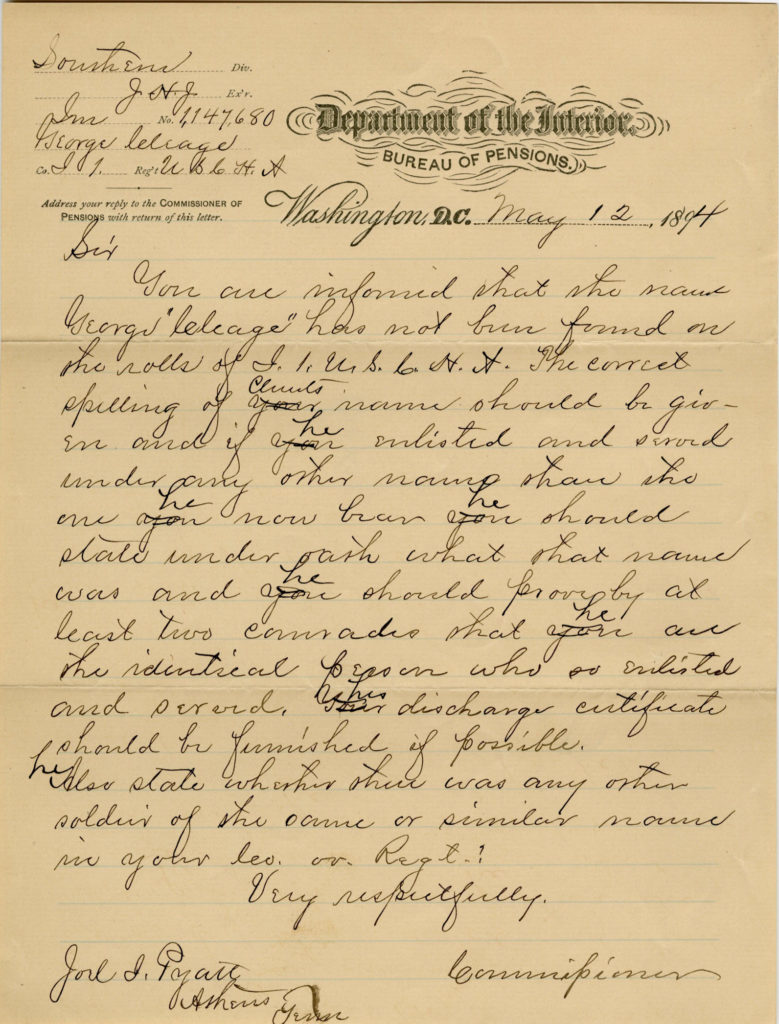 Southern Div.
J. H. J. Ex'r.
Inv No. 1,147,680
George Cleage
Co. I 1. Reg't U S C H. A
Address your reply to the COMMISSIONER OF
PENSIONS with return of this letter.
Department of the Interior,
BUREAU OF PENSIONS,
Washington, D.C. May 12, 1894
Sir
You are informed that the name
George "Cleage" has not been found on
the rolls of I. 1. U. S. C. H. A. The correct
Clmts
spelling of your name should be giv-
he
en and if you enlisted and served
under any other name than the
he he
one you now bear you should
state under oath what that name
he
was and you should prove by at
he
least two comrades that you are
the identical person who so enlisted
his
and served. Your discharge certificate
should be furnished if possible.
he
Also state whether there was any other
soldier of the same or similar name
in your Co. or Regt.?
Very respectfully.
Joel I. Pyatt
Athens
Tenn
Commissioner